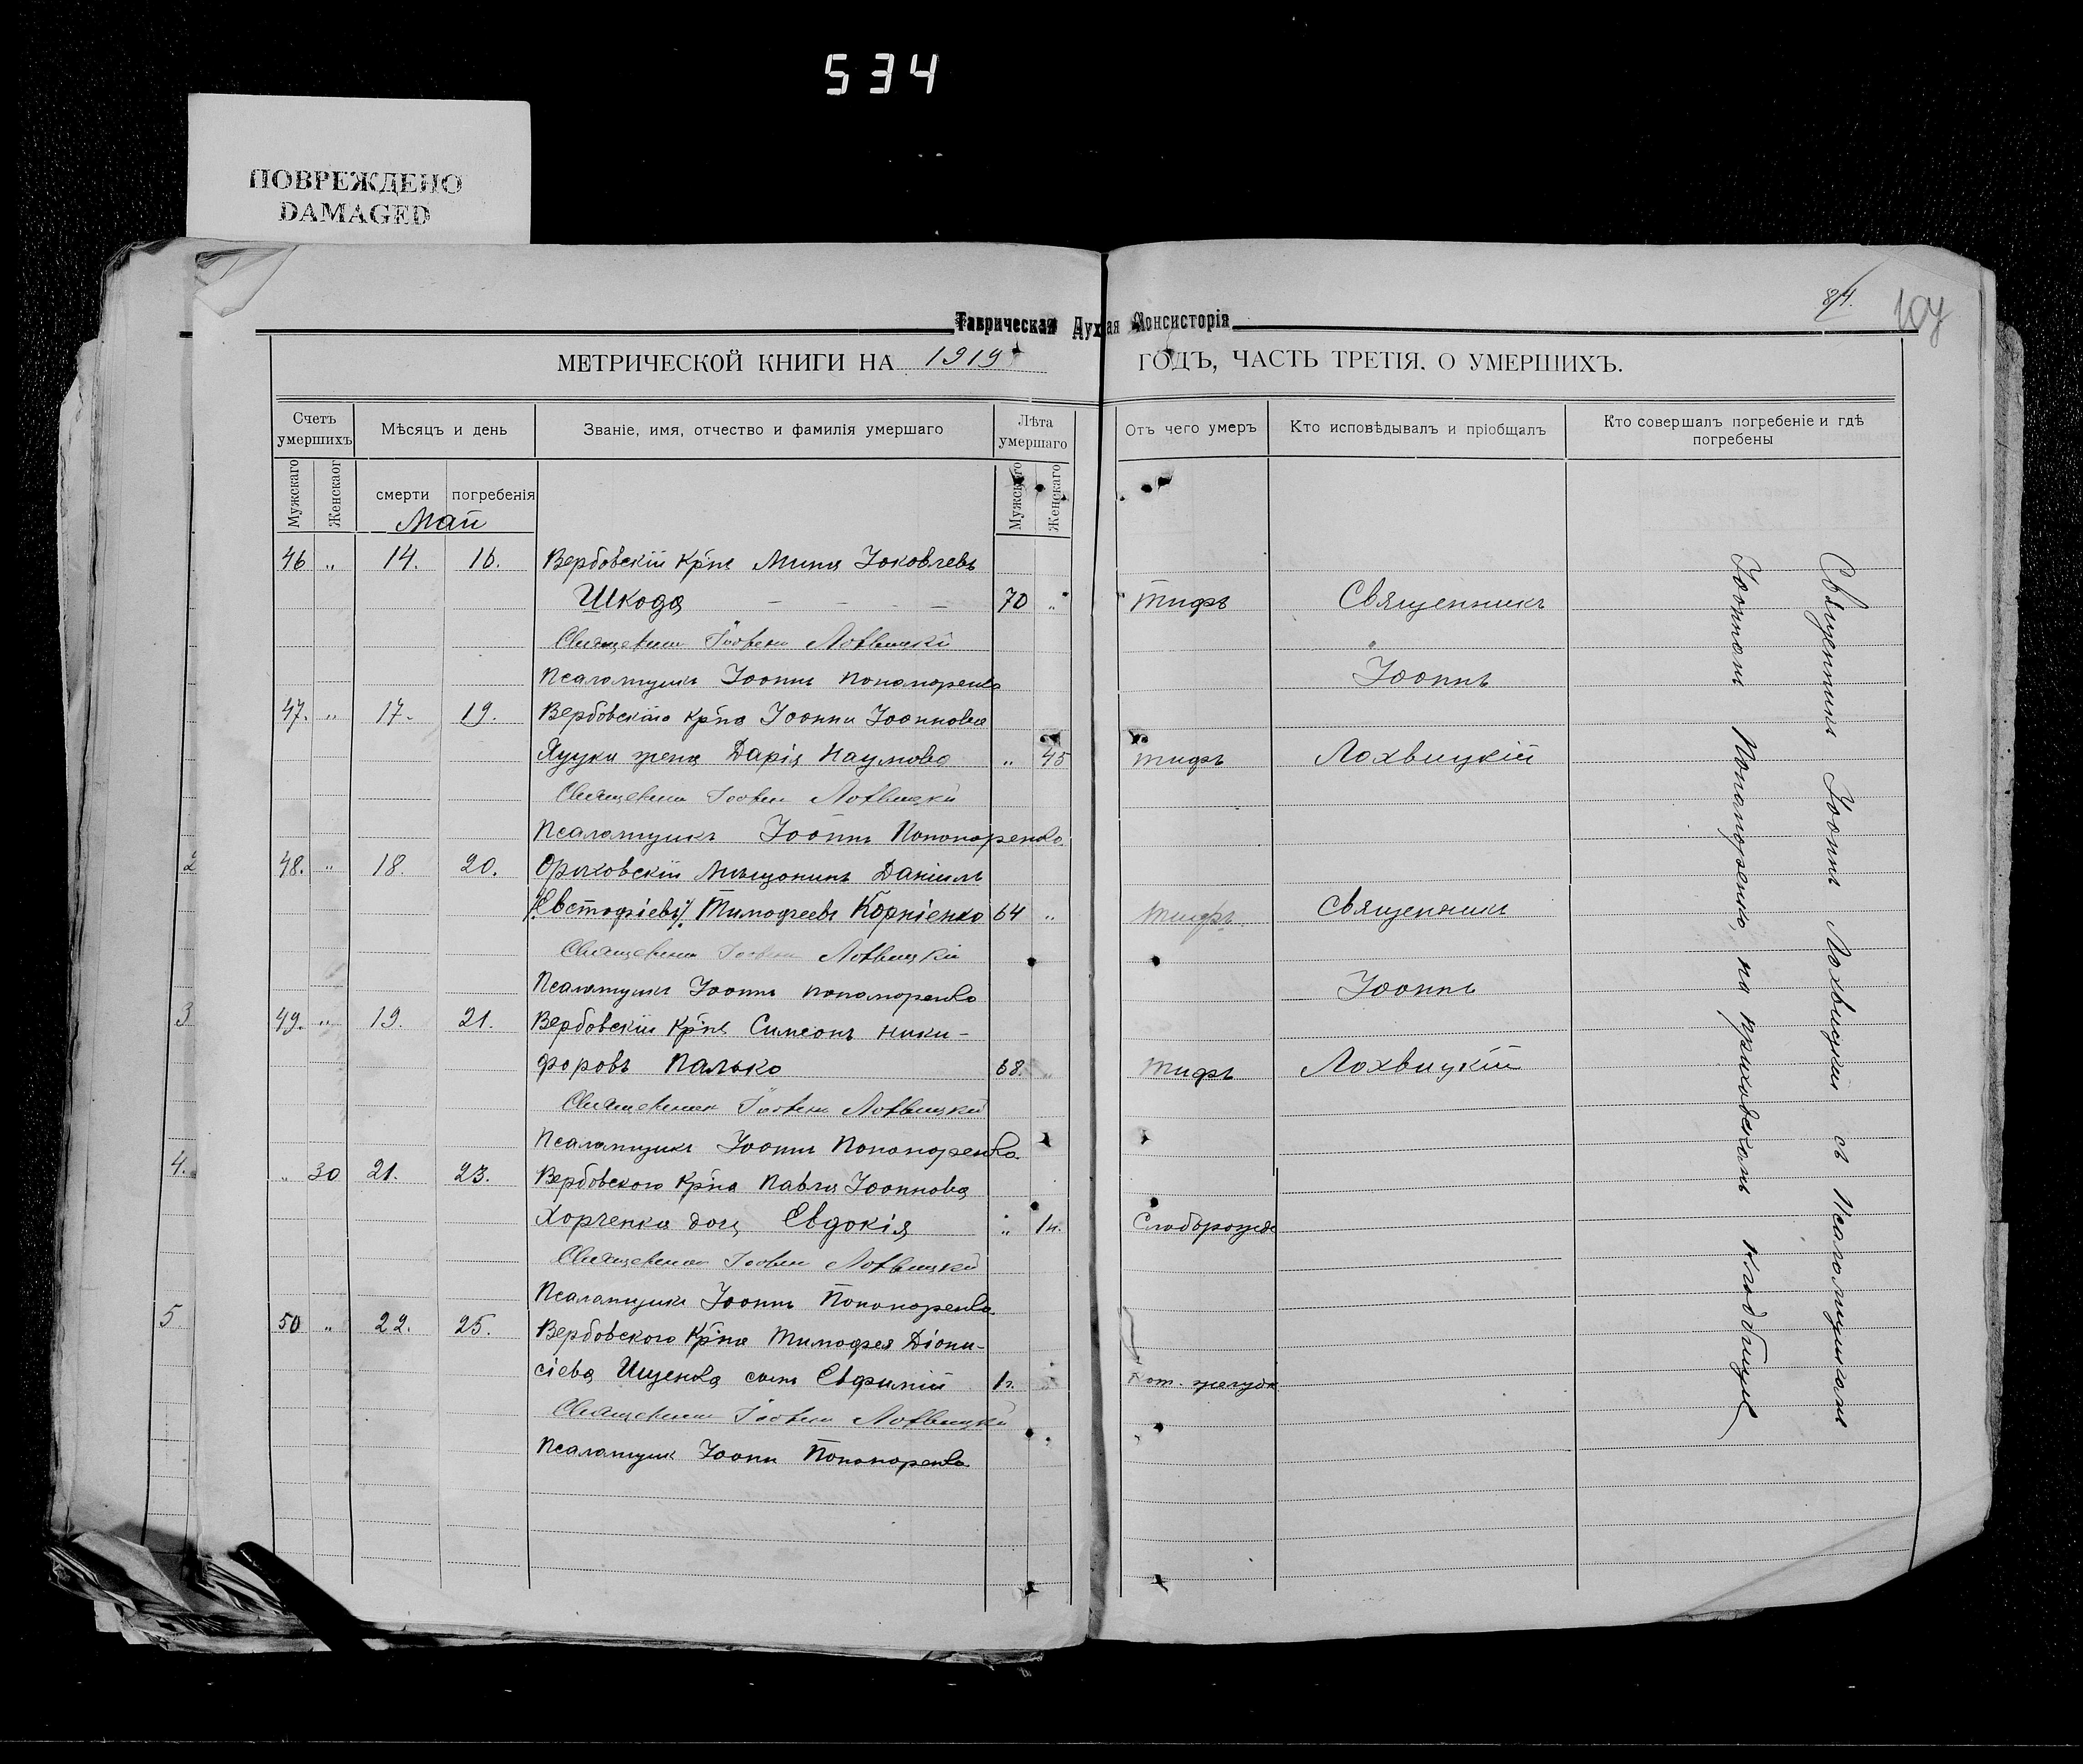 534
ПОВРЕЖДЕНО
DAMAGED
Таврическая Духая Консисторія
84.
МЕТРИЧЕСКОЙ КНИГИ НА 1919
ГОДЪ, ЧАСТЬ ТРЕТІЯ. О УМЕРШИХЪ.
Счетъ умершихъ
Мѣсяцъ и день
Званіе, имя, отчество и фамилія умершаго
Лѣта умершаго
Отъ чего умеръ
Кто исповѣдывалъ и пріобщалъ
Кто совершалъ погребеніе и гдѣ погребены
Мужскаго
Женскаго
смерти
погребенія
Мужскаго
Женскаго
Май
46 " 14. 16. Вербовскій кр꙯нъ Мина Іоковлевъ
Шкода — — — — 70 " тифъ Священникъ
Священникъ Іоаннъ Лохвицкій
Псаломщикъ Іоаннъ Пономаренко Іоаннъ
47. " 17. 19. Вербовскаго кр꙯на Іоанна Іоаннова
Яцуки жена Дарія Наумова " 45 тифъ Лохвицкій
Священникъ Іоаннъ Лохвицкій
Псаломщикъ Іоаннъ Пономаренко
48. " 18. 20. Орѣховскій мѣщанинъ Даніилъ
/Евстафіевъ/ Тимофеевъ Корніенко 64 " тифъ Священникъ
Священникъ Іоаннъ Лохвицкій
Псаломщикъ Іоаннъ Пономаренко Іоаннъ
49. " 19. 21. Вербовскій кр꙯нъ Симеонъ Ники-
форовъ Палько 68. " тифъ Лохвицкій
Священникъ Іоаннъ Лохвицкій
Псаломщикъ Іоаннъ Пономаренко
" 30 21. 23. Вербовского кр꙯на Павла Іоаннова
Харченка дочь Евдокія " 1н. Слаборожд
Священникъ Іоаннъ Лохвицкій
Псаломщикъ Іоаннъ Пономаренко
50 " 22. 25. Вербовского кр꙯на Тимофея Діони-
сіева Ищенка сынъ Евфимій 1г. Кат. желудк
Священникъ Іоаннъ Лохвицкій
Псаломщик Іоанн Пономаренко
Священникъ Іоаннъ Лохвицкій съ Псаломщикомъ
Іоанномъ Пономаренко, на приходскомъ кладбищѣ
2
3
4.
5